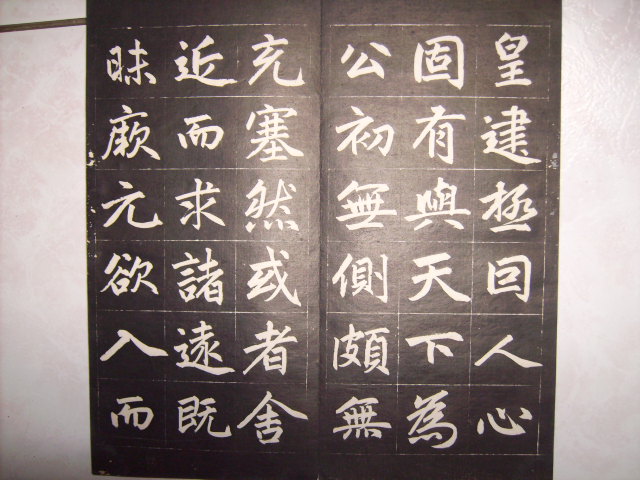 皇建極回人心
固有與天下為
公初無側頗無
充塞然或者舍
近而求諸遠既
昧厥元欲入而